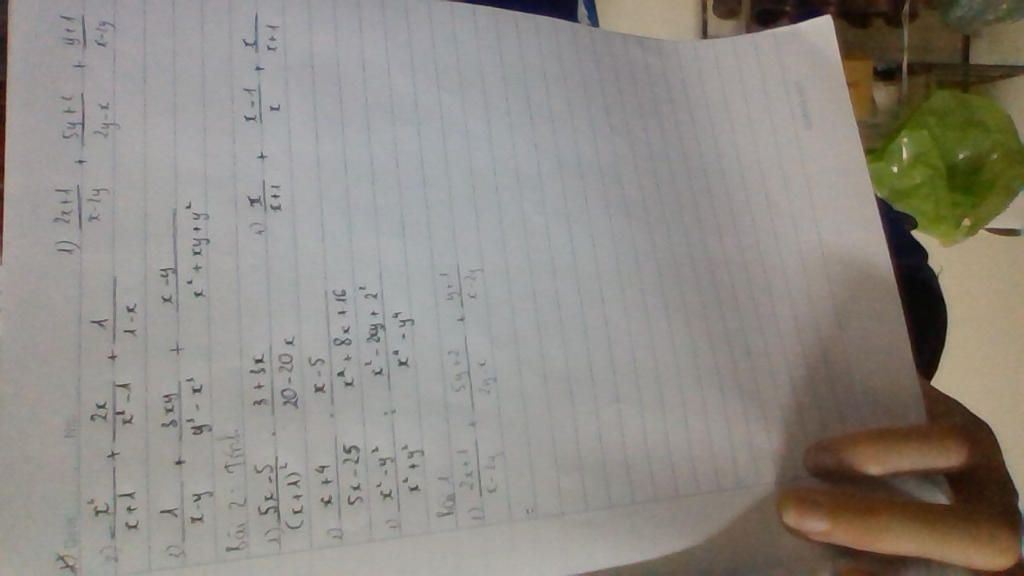 1) \frac{2x+1}{x-2y} + \frac{5y+2}{2y-x} + \frac{y+1}{x-2y}
2) \frac{x^2}{x+1} + \frac{2x}{x^2-1} + \frac{1}{1-x}
3) \frac{1}{x-y} + \frac{3xy}{y^3-x^3} + \frac{x-y}{x^2+xy+y^2}
Bài 2: Tính
1) \frac{5x-5}{(x+1)^2} . \frac{3+3x}{20-20x}
4) \frac{x}{x+1} + \frac{x-1}{x} + \frac{x}{x+1}
2) \frac{x+4}{5x-25} . \frac{x-5}{x^2+8x+16}
\frac{x^2-y^2}{x^2+y^2} : \frac{x^2-2xy+2^2}{x^4-y^4}
Bài 1
1) \frac{2x+1}{x-2y} + \frac{5y+2}{2y-x} + \frac{y+1}{x-2y}
=